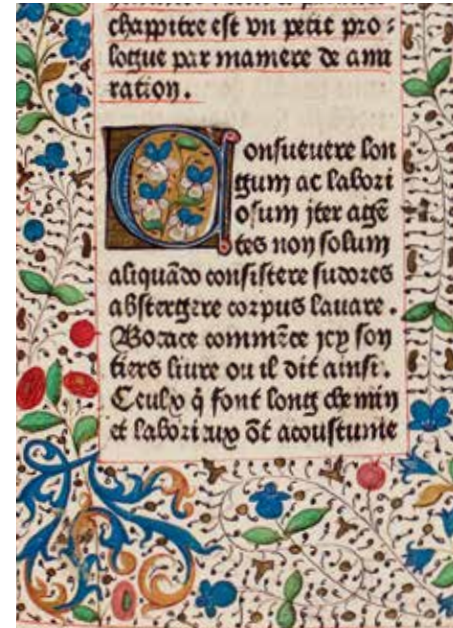 chappitre est vn petit pro-
logue par maniere de ann
ration.
Consueuere lon
gum ac labori
osum iter agē
tes non solum
aliquādo consistere sudores
abstergere corpus lauare.
Bocace commēce icy son
tiers liure ou il dit ainsi.
Ceulx q̄ font long chemin
et laborieux ōt acoustume